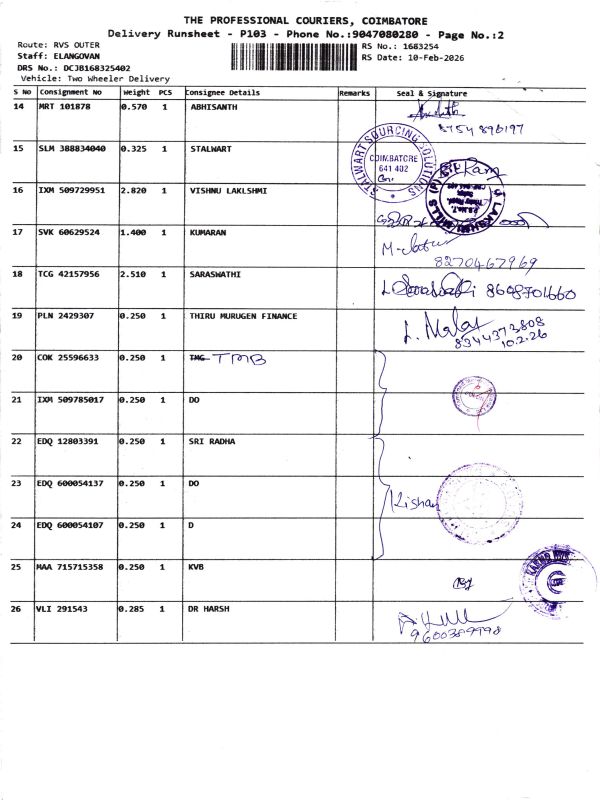 THE PROFESSIONAL COURIERS, COIMBATORE
Delivery Runsheet - P103 - Phone No.:9047080280 - Page No.:2
Route: RVS OUTER
RS No.: 1683254
Staff: ELANGOVAN
RS Date: 10-Feb-2026
DRS No.: DCJB168325402
Vehicle: Two Wheeler Delivery
S No Consignment No Weight PCS Consignee Details Remarks Seal & Signature
14 MRT 101878 0.570 1 ABHISANTH
8754 896197
15 SLM 388834040 0.325 1 STALWART
STALWART SOURCING SOLUTIONS
COIMBATORE
641 402
16 IXM 509729951 2.820 1 VISHNU LAKLSHMI
17 SVK 60629524 1.400 1 KUMARAN
8270467969
18 TCG 42157956 2.510 1 SARASWATHI
8608701660
19 PLN 2429307 0.250 1 THIRU MURUGEN FINANCE
L. Malar
8344373808
10.2.26
20 COK 25596633 0.250 1 TMG TMB
21 IXM 509785017 0.250 1 DO
22 EDQ 12803391 0.250 1 SRI RADHA
23 EDQ 600054137 0.250 1 DO
Kishan
24 EDQ 600054107 0.250 1 D
25 MAA 715715358 0.250 1 KVB
26 VLI 291543 0.285 1 DR HARSH
9600389998